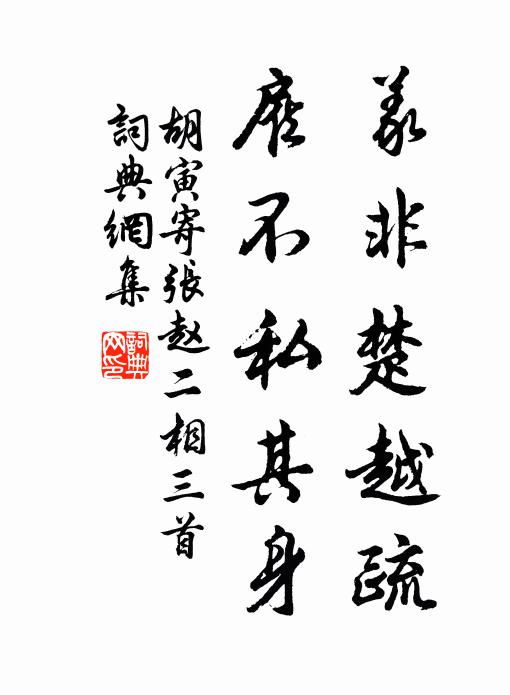 義非楚越疏
應不私其身
胡寅寄張赵二相三首
詞典網集
詞典网印